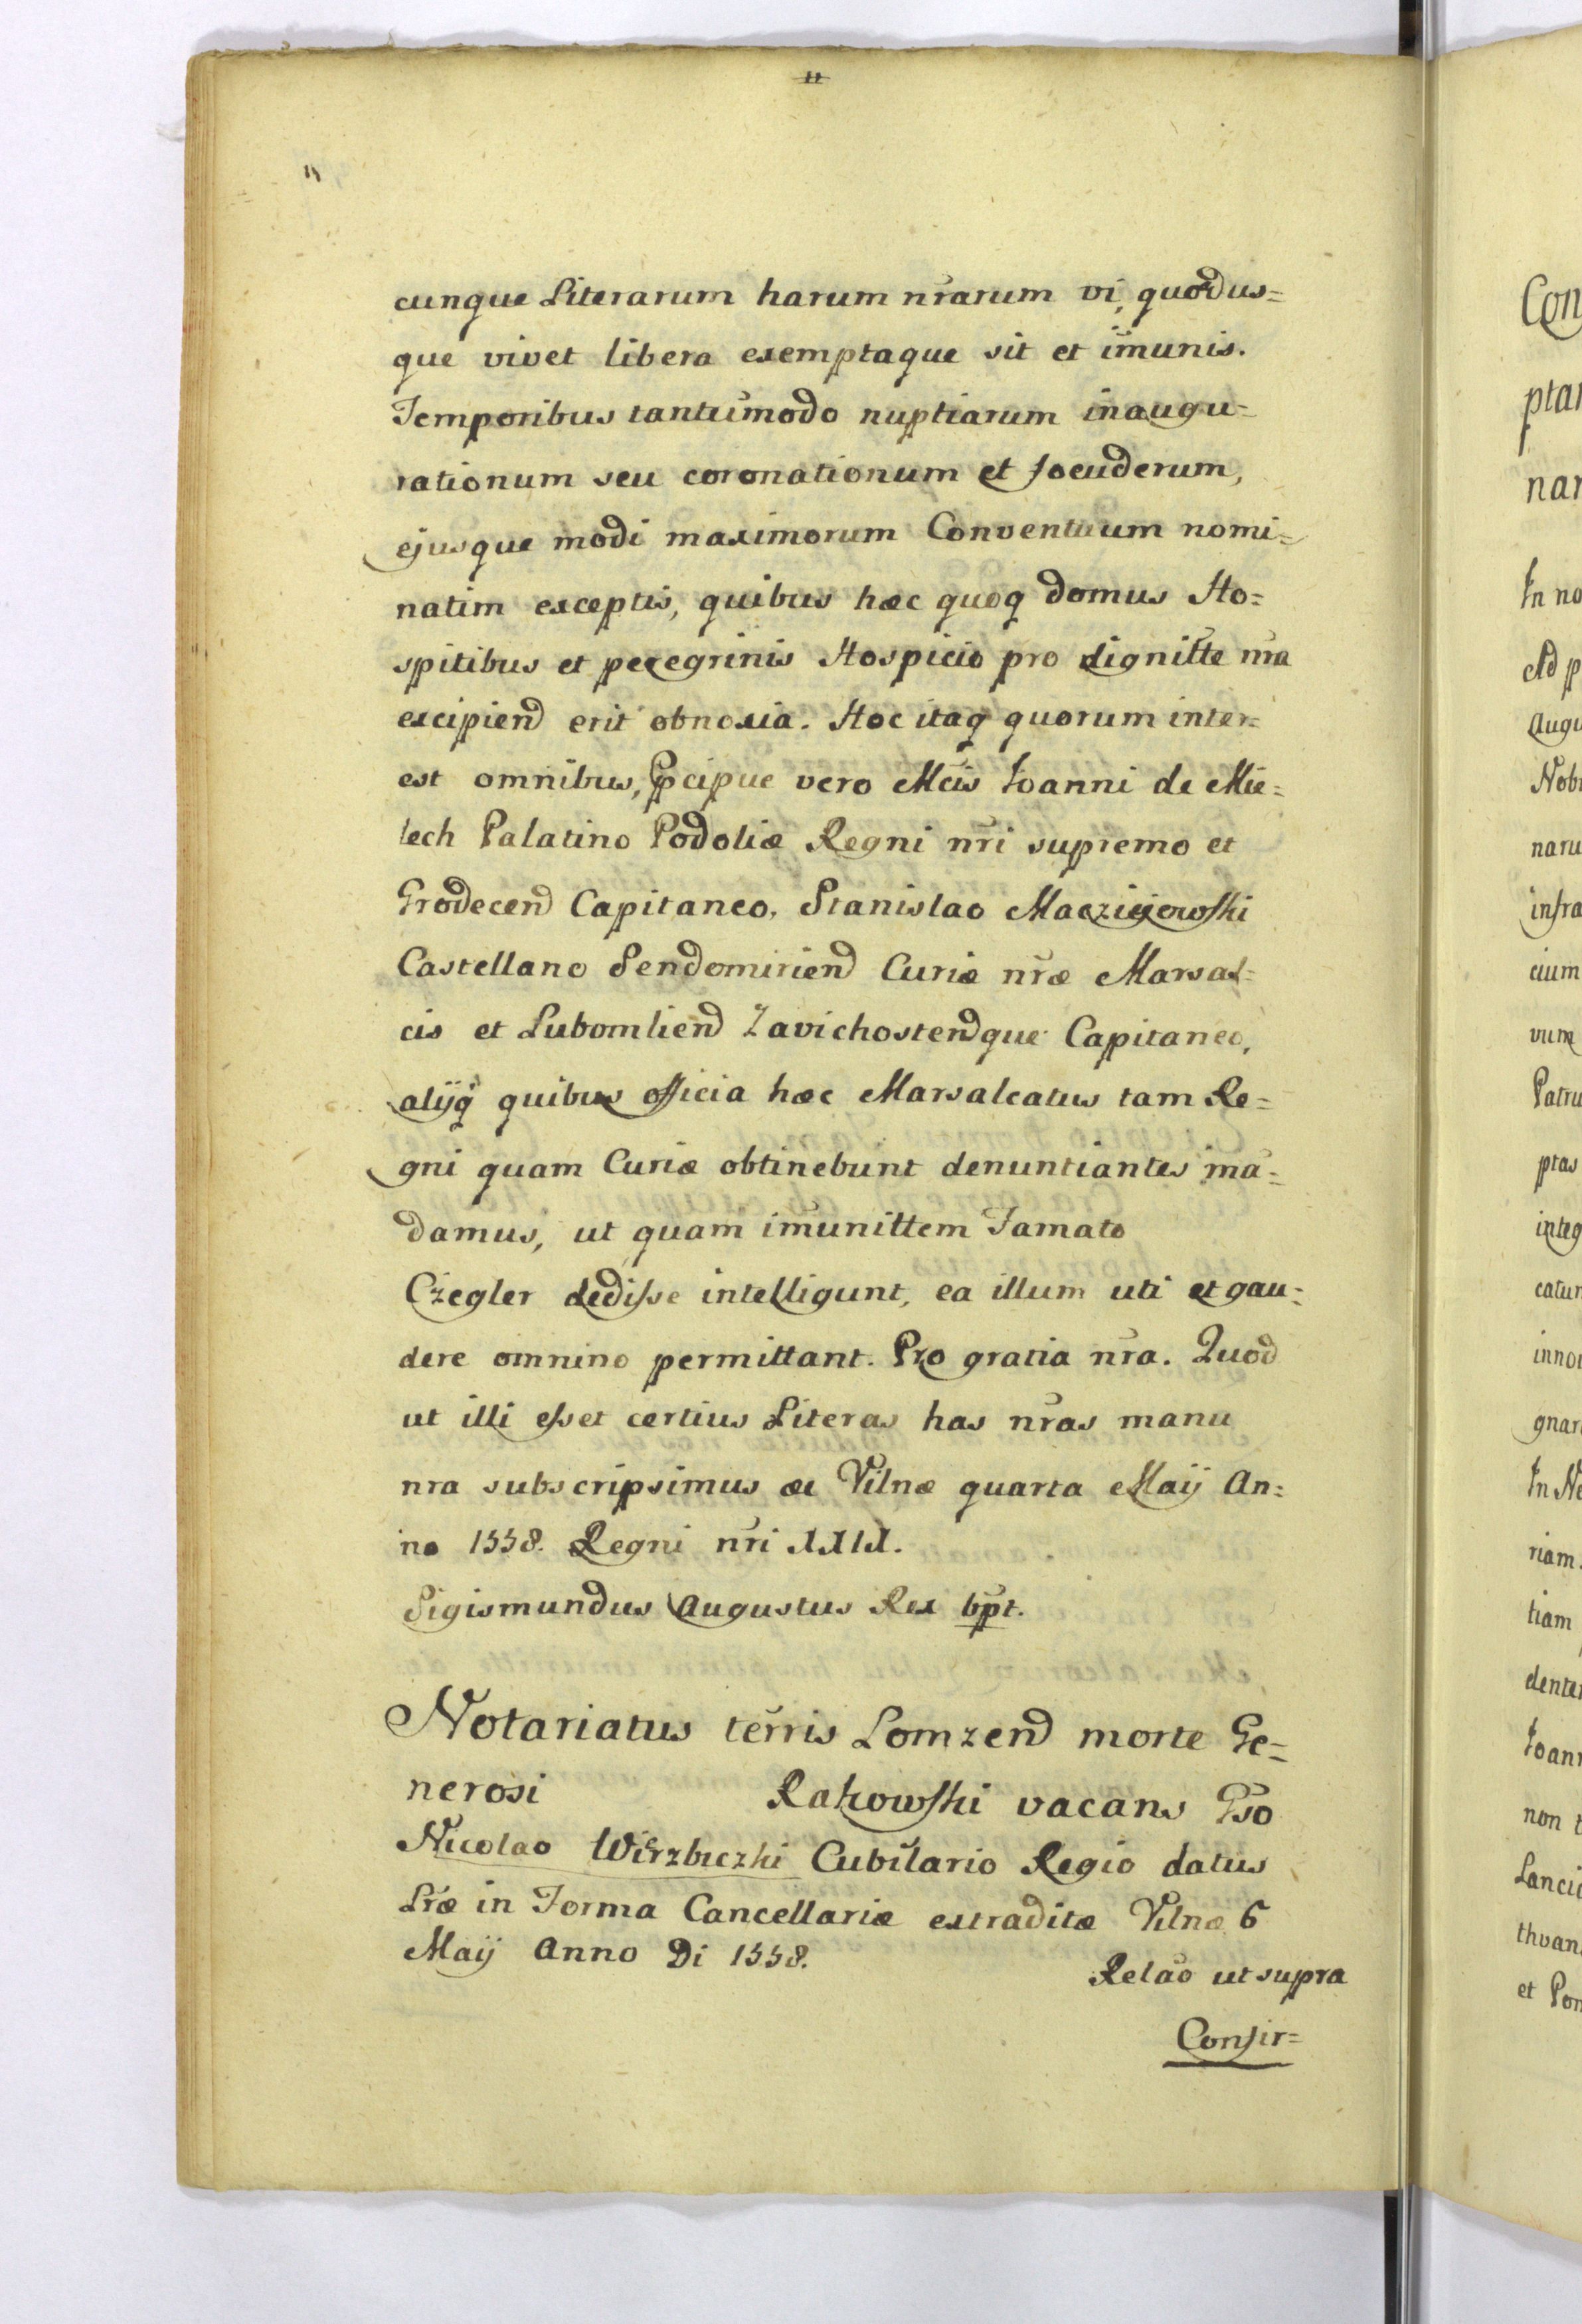 11
cunque Literarum harum nr̃arum vi, quoadus=
que vivet libera exemptaque sit et im̃unis.
Temporibus tantum̃odo nuptiarum inaugu=
rationum seu coronationum et foeuderum,
ejusque modi maximorum Conventuum nomi=
natim exceptis, quibus hæc quoq domus Ho=
spitibus et peregrinis Hospicio pro dignit̃te nr̃a
excipiend erit obnoxia. Hoc itaq quorum inter=
est omnibus, p̃cipue vero Mc̃is Joanni de Mie=
lech Palatino Podoliæ Regni nr̃i supremo et
Grodecend Capitaneo, Stanislao Macziejowski
Castellano Sendomiriend Curiæ nr̃æ Marsal=
cis et Lubomliend Zavichostendque Capitaneo,
alijq quibus officia hæc Marsalcatus tam Re=
gni quam Curiæ obtinebunt denuntiantes mã=
damus, ut quam im̃unittem Famato
Czegler dedisse intelligunt, ea illum uti et gau=
dere omnino permittant. Pro gratia nr̃a. Quod
ut illi esset certius Literas has nr̃as manu
nra subscripsimus Vilnæ quarta Maij An=
no 1558. Regni nr̃i XXIX.
Sigismundus Augustus Rex
Notariatus ter̃ris Lomzend morte Ge=
nerosi Rakowski vacans Gso
Nicolao Wirzbiczki Cubilario Regio datus
Lr̃æ in Forma Cancellariæ extraditæ Vilnæ 6
Maij Anno Di 1558.
Relão ut supra
Confir=